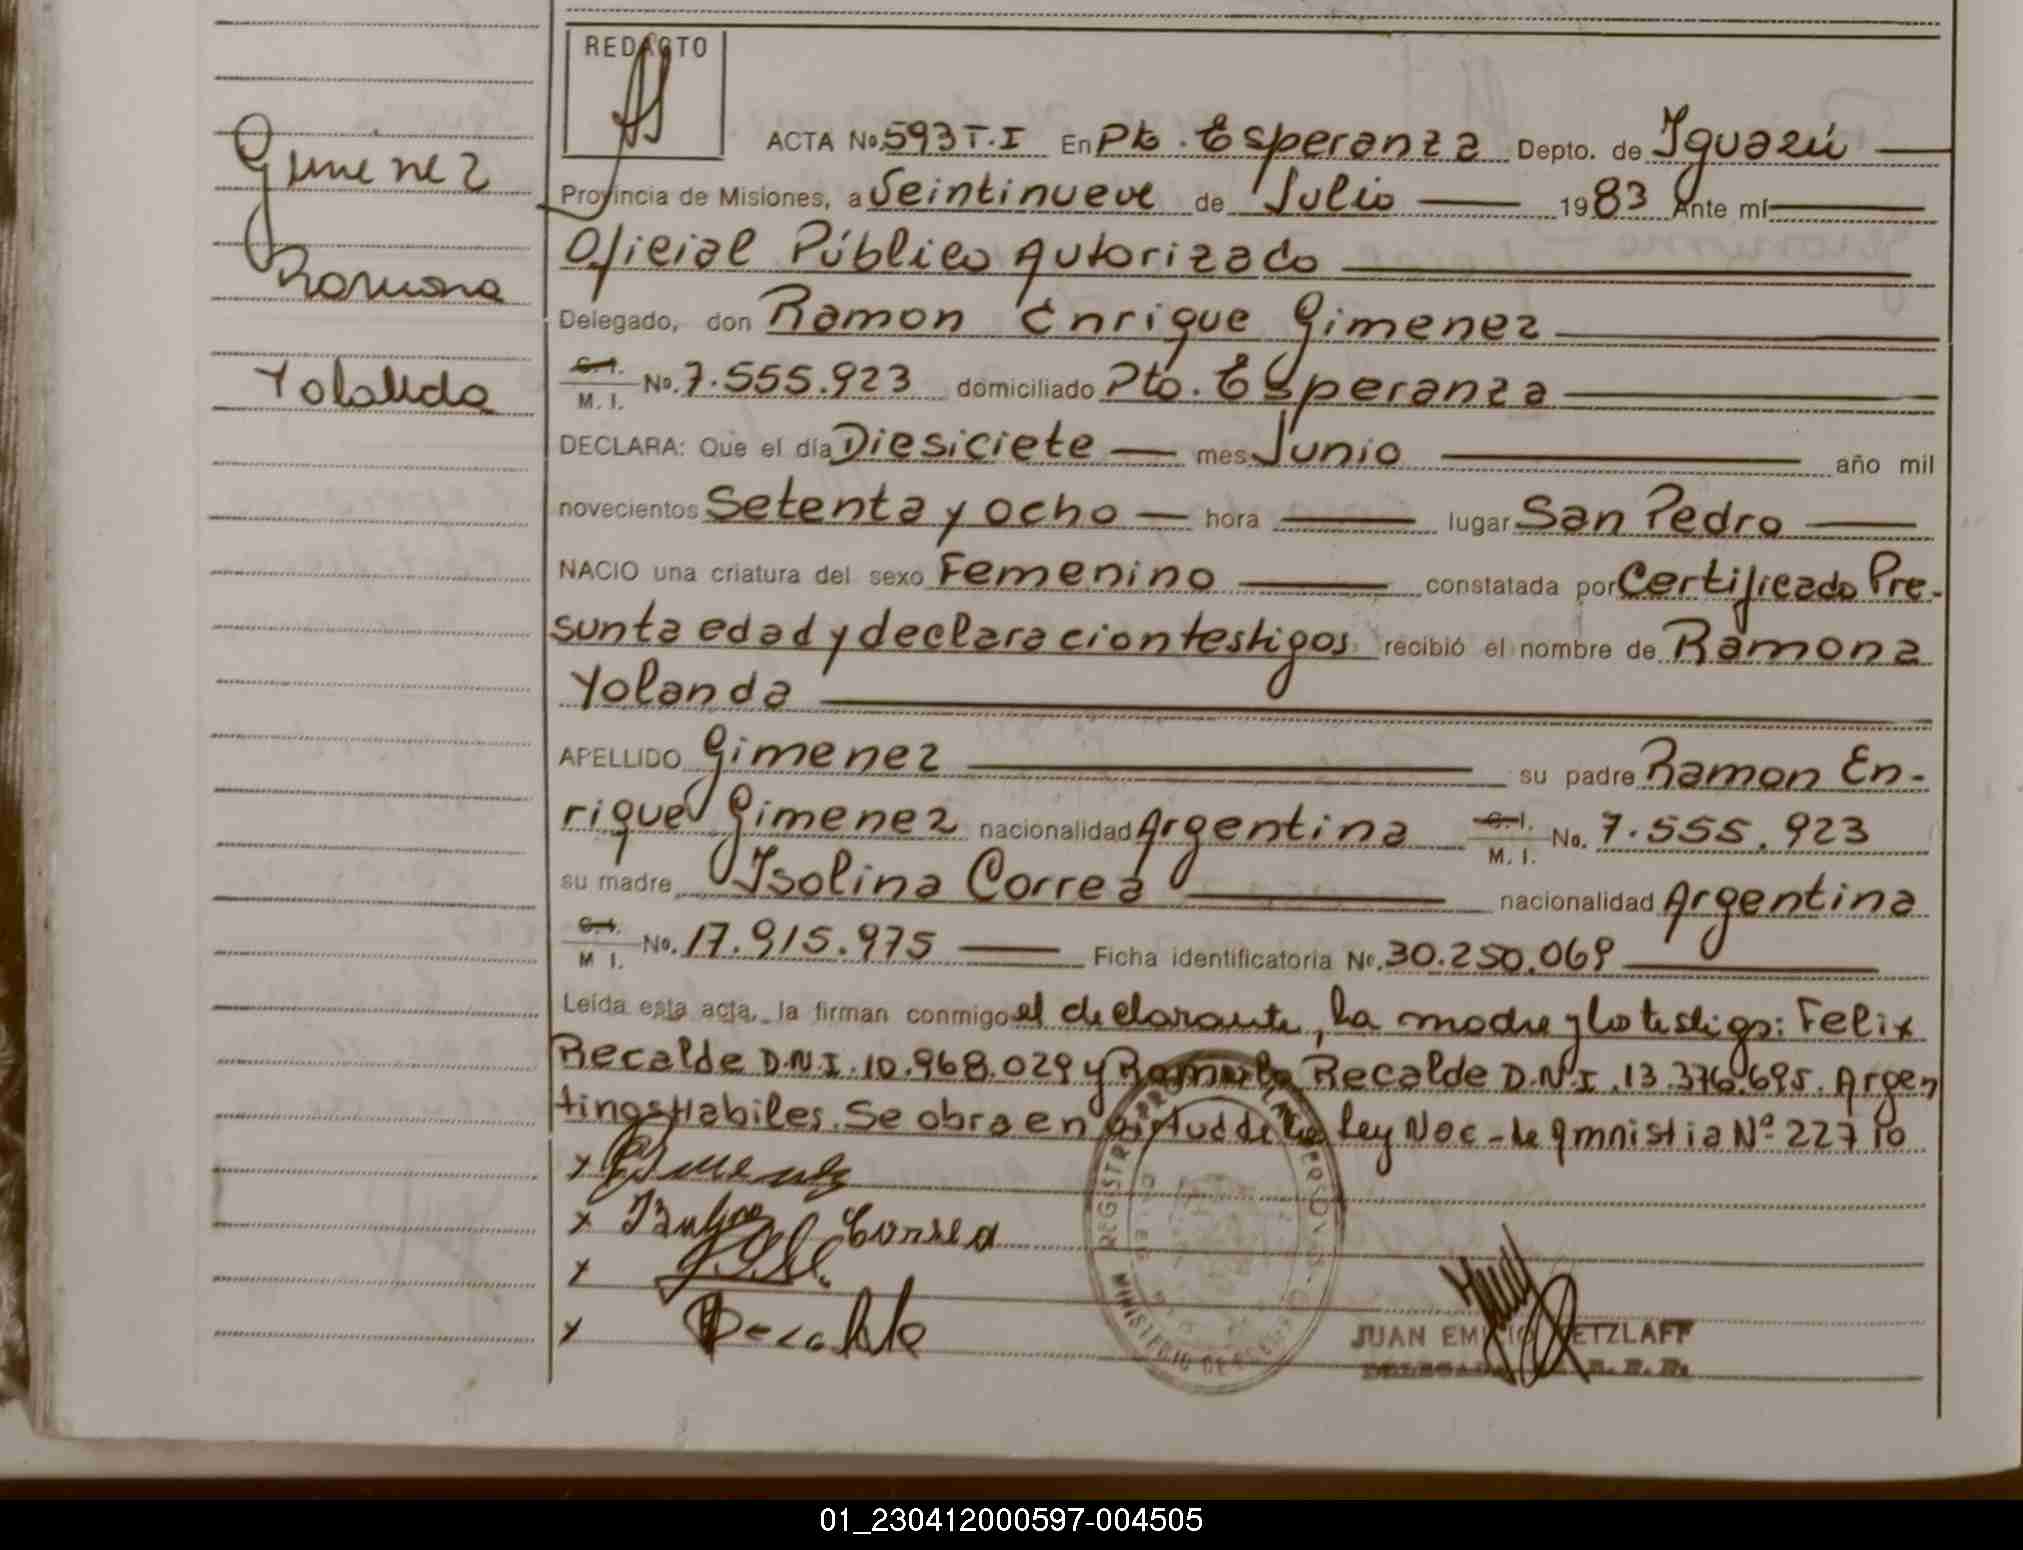 REDACTO
ACTA No. 593 T.I En Pto. Esperanza Depto. de Iguazú
Provincia de Misiones, a Veintinueve de Julio 1983 Ante mí
Oficial Público Autorizado
Delegado, don Ramon Enrique Gimenez
C.I. M.I. No. 7.555.923 domiciliado Pto. Esperanza
DECLARA: Que el día Diesiciete mes Junio año mil
novecientos Setenta y ocho hora lugar San Pedro
NACIO una criatura del sexo Femenino constatada por Certificado Pre-
sunta edad y declaracion testigos recibió el nombre de Ramona
Yolanda
APELLIDO Gimenez su padre Ramon En-
rique Gimenez nacionalidad Argentina C.I. M.I. No. 7.555.923
su madre Isolina Correa nacionalidad Argentina
C.I. M I. No. 17.915.975 Ficha identificatoria No. 30.250.069
Leída esta acta, la firman conmigo el declarante, la madre y los testigos: Felix
Recalde D.N.I. 10.968.029 y Recalde D.N.I. 13.376.695. Argen
tinos Habiles. Se obra en virtud de la Ley Nac. de Amnistia Nº 22710
Gimenez
Ramona
Yolanda
x Gimenez
x Correa
x
x Recalde
REGISTRO PROV. DE LAS PERSONAS
MINISTERIO DE
JUAN EMILIO RETZLAFF
DELEGADO R. P. P.
01_230412000597-004505